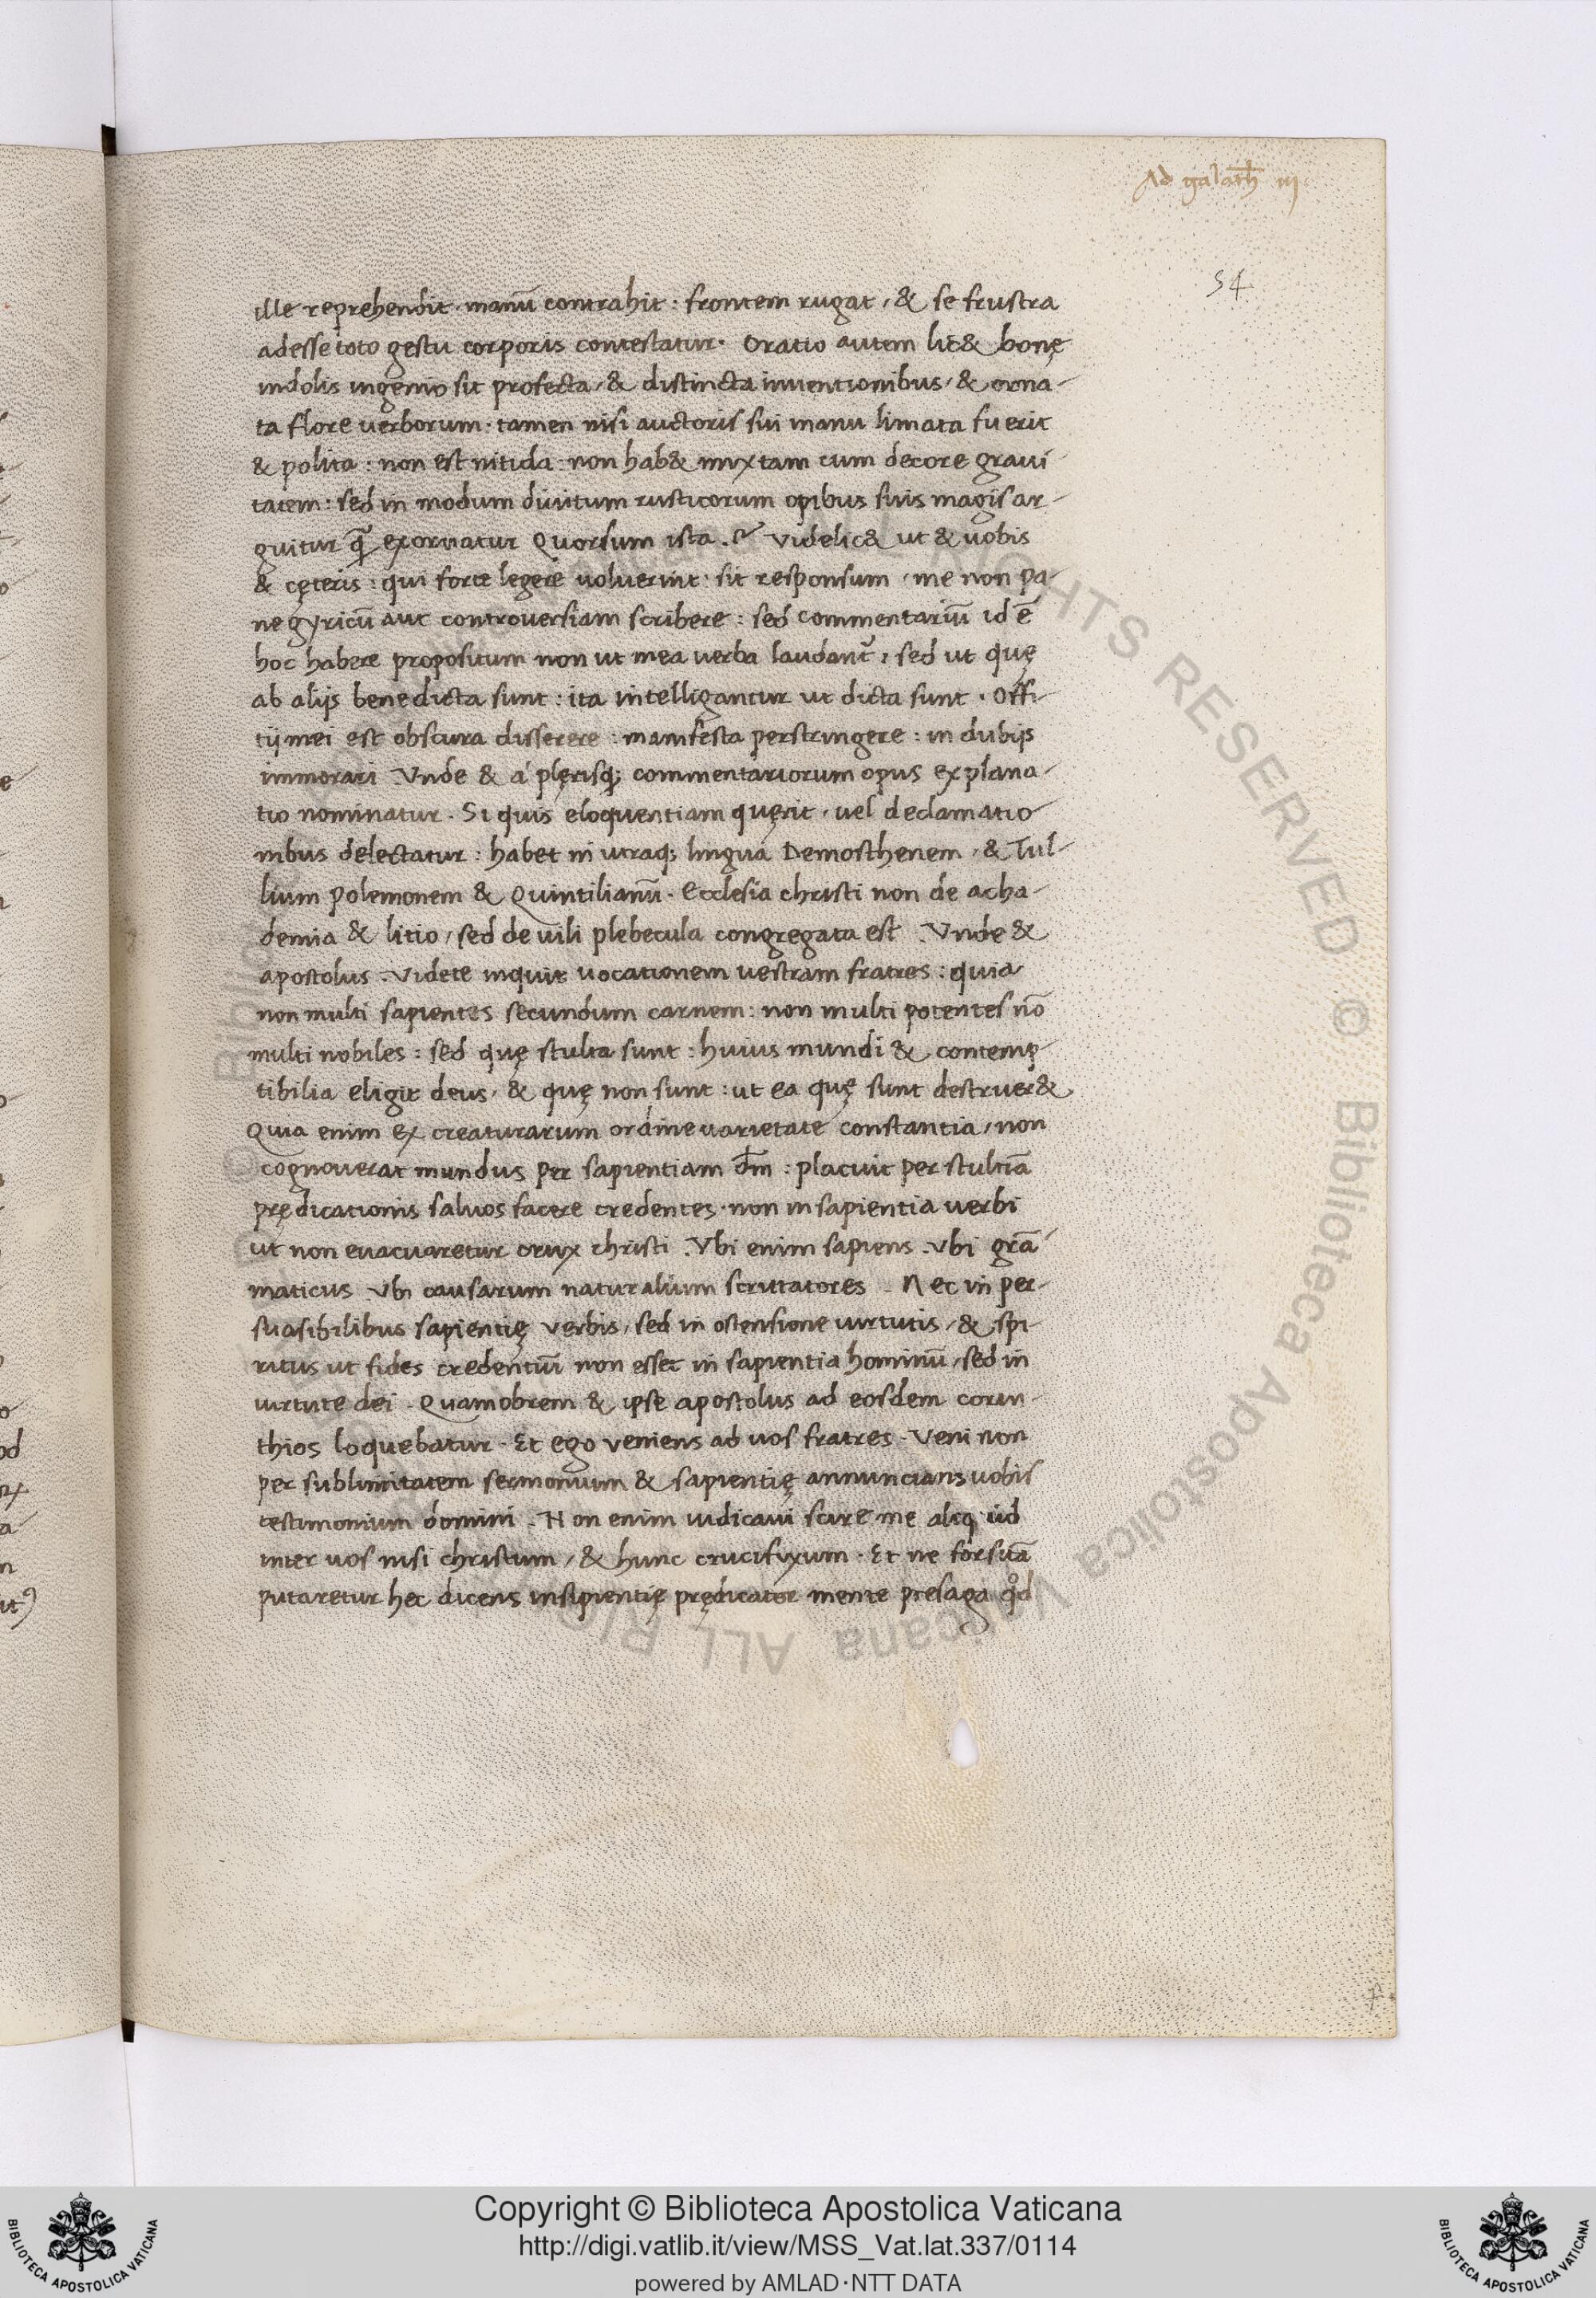 Ad galath̄ iij
54
ille reprehendit · manū contrahit : frontem rugat , & se frustra
adesse toto gestu corporis contestatur · Oratio autem lic& bonę
indolis ingenio sit profecta , & distincta inuentionibus , & orna-
ta flore uerborum · tamen nisi auctoris sui manu limata fuerit
& polita : non est nitida : non hab& mixtam cum decore graui-
tatem : sed in modum diuitum rusticorum opibus suis magis ar-
guitur q̄ exornatur Quorsum ista .? Videlic& ut & uobis
& cęteris : qui forte legere uoluerint · sit responsum , me non pa-
negyricū aut controuersiam scribere : sed commentariū id ē
hoc habere propositum non ut mea uerba laudant᷑ , sed ut quę
ab alijs bene dicta sunt : ita intelligantur ut dicta sunt . Offi-
tij mei est obscura disserere : manifesta perstringere : in dubijs
immorari . Vnde & á plęrisq; commentariorum opus explana-
tio nominatur . Si quis eloquentiam quęrit , uel declamatio-
nibus delectatur : habet in utraq; lingua Demosthenem , & Tul-
lium Polemonem & Quintilianū . Ecclesia christi non de acha-
demia & litio , sed de uili plebecula congregata est . Vnde &
apostolus . Videte inquit uocationem uestram fratres : quia
non multi sapientes secundum carnem : non multi potentes nō
multi nobiles : sed quę stulta sunt : huius mundi & contemp-
tibilia eligit deus , & quę non sunt : ut ea quę sunt destruer&
Quia enim ex creaturarum ordine uarietate constantia , non
cognouerat mundus per sapientiam dm̄ : placuit per stultiā
prędicationis saluos facere credentes · non in sapientia uerbi
ut non euacuaretur crux christi . Vbi enim sapiens . Vbi grā-
maticus . Vbi causarum naturalium scrutatores . Nec in per-
suasibilibus sapientię verbis , sed in ostensione uirtutis , & spi-
ritus ut fides credentiū non esset in sapientia hominū , sed in
uirtute dei . Quamobrem & ipse apostolus ad eosdem corin-
thios loquebatur . Et ego veniens ad uos fratres . Veni non
per sublimitatem sermonum & sapientię annuncians uobis
testimonium domini . Non enim iudicaui scire me aliquid
inter uos nisi christum , & hunc crucifixum . Et ne forsitā
putaretur hec dicens insipientię prędicator mente presaga qd̊
Copyright © Biblioteca Apostolica Vaticana
http://digi.vatlib.it/view/MSS_Vat.lat.337/0114
powered by AMLAD·NTT DATA
BIBLIOTECA APOSTOLICA VATICANA
BIBLIOTECA APOSTOLICA VATICANA